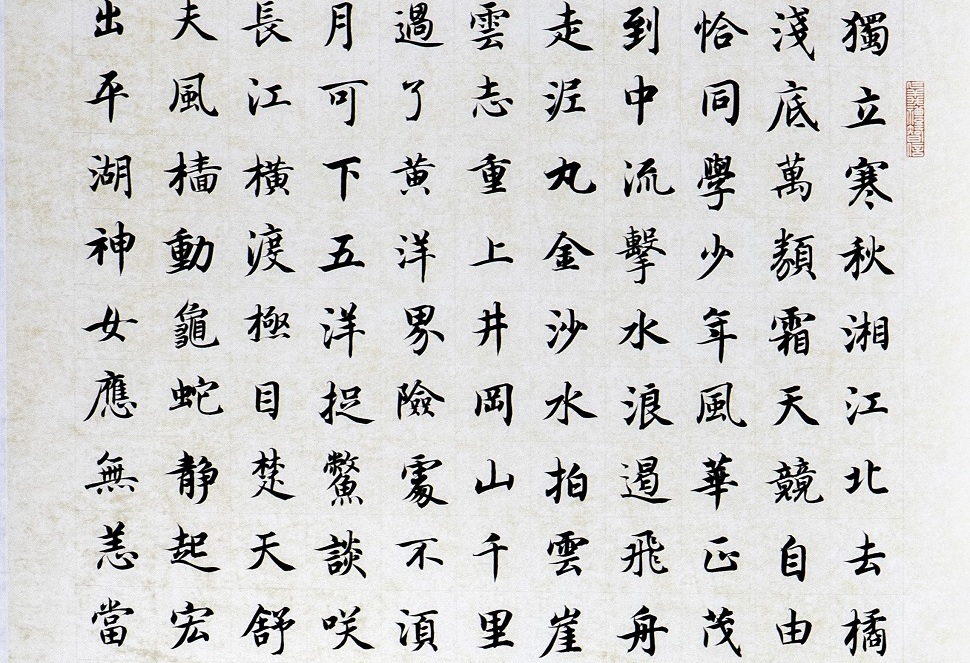 獨立寒秋湘江北去橘
淺底萬類霜天競自由
恰同學少年風華正茂
到中流擊水浪遏飛舟
走泥丸金沙水拍雲崖
雲志重上井岡山千里
過了黄洋界險處不須
月可下五洋捉鱉談咲
長江橫渡極目楚天舒
夫風檣動龜蛇静起宏
出平湖神女應無恙當